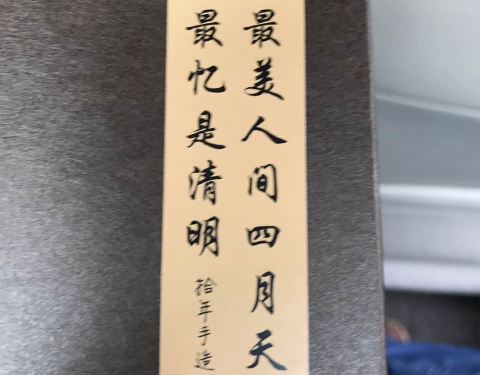 最美人间四月天
最忆是清明
拾年手造